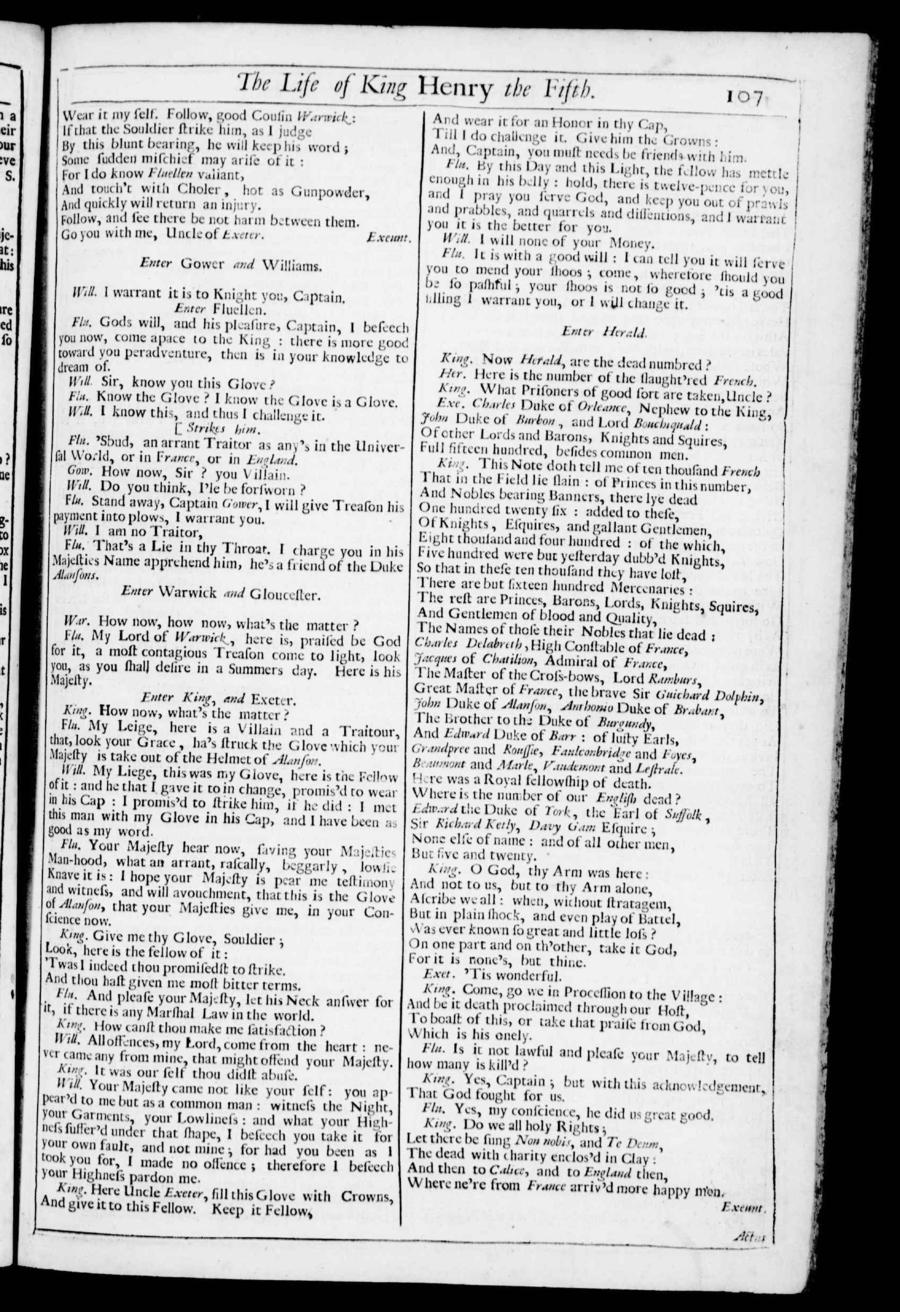 The Life of King Henry the Fifth.
107
Wear it my ſelf. Follow, good Couſin Warwick:
If that the Souldier ſtrike him, as I judge
By this blunt bearing, he will keep his word;
Some ſudden miſchief may ariſe of it:
For I do know Fluellen valiant,
And touch't with Choler, hot as Gunpowder,
And quickly will return an injury.
Follow, and ſee there be not harm between them.
Go you with me, Uncle of Exeter. Exeunt.
Enter Gower and Williams.
Will. I warrant it is to Knight you, Captain.
Enter Fluellen.
Flu. Gods will, and his pleaſure, Captain, I beſeech
you now, come apace to the King: there is more good
toward you peradventure, then is in your knowledge to
dream of.
Will. Sir, know you this Glove?
Flu. Know the Glove? I know the Glove is a Glove.
Will. I know this, and thus I challenge it.
[Strikes him.
Flu. 'Sbud, an arrant Traitor as any's in the Univer-
ſal World, or in France, or in England.
Gow. How now, Sir? you Villain.
Will. Do you think, I'le be forſworn?
Flu. Stand away, Captain Gower, I will give Treaſon his
payment into plows, I warrant you.
Will. I am no Traitor,
Flu. That's a Lie in thy Throat. I charge you in his
Majeſties Name apprehend him, he's a friend of the Duke
Alanſons.
Enter Warwick and Glouceſter.
War. How now, how now, what's the matter?
Flu. My Lord of Warwick, here is, praiſed be God
for it, a moſt contagious Treaſon come to light, look
you, as you ſhall deſire in a Summers day. Here is his
Majeſty.
Enter King, and Exeter.
King. How now, what's the matter?
Flu. My Leige, here is a Villain and a Traitour,
that, look your Grace, ha's ſtruck the Glove which your
Majeſty is take out of the Helmet of Alanſon.
Will. My Liege, this was my Glove, here is the Fellow
of it: and he that I gave it to in change, promis'd to wear
in his Cap: I promis'd to ſtrike him, if he did: I met
this man with my Glove in his Cap, and I have been as
good as my word.
Flu. Your Majeſty hear now, ſaving your Majeſties
Man-hood, what an arrant, raſcally, beggarly, lowſie
Knave it is: I hope your Majeſty is pear me teſtimony
and witneſs, and will avouchment, that this is the Glove
of Alanſon, that your Majeſties give me, in your Con-
ſcience now.
King. Give me thy Glove, Souldier;
Look, here is the fellow of it:
'Twas I indeed thou promiſedſt to ſtrike.
And thou haſt given me moſt bitter terms.
Flu. And pleaſe your Majeſty, let his Neck anſwer for
it, if there is any Marſhal Law in the world.
King. How canſt thou make me ſatisfaction?
Will. All offences, my Lord, come from the heart: ne-
ver came any from mine, that might offend your Majeſty.
King. It was our ſelf thou didſt abuſe.
Will. Your Majeſty came not like your ſelf: you ap-
pear'd to me but as a common man: witneſs the Night,
your Garments, your Lowlineſs: and what your High-
neſs ſuffer'd under that ſhape, I beſeech you take it for
your own fault, and not mine; for had you been as I
took you for, I made no offence; therefore I beſeech
your Highneſs pardon me.
King. Here Uncle Exeter, fill this Glove with Crowns,
And give it to this Fellow. Keep it Fellow,
And wear it for an Honor in thy Cap,
Till I do challenge it. Give him the Crowns:
And, Captain, you muſt needs be friends with him.
Flu. By this Day and this Light, the fellow has mettle
enough in his belly: hold, there is twelve-pence for you,
and I pray you ſerve God, and keep you out of prawls
and prabbles, and quarrels and diſſentions, and I warrant
you it is the better for you.
Will. I will none of your Money.
Flu. It is with a good will: I can tell you it will ſerve
you to mend your ſhoos; come, wherefore ſhould you
be ſo paſhful; your ſhoos is not ſo good; 'tis a good
ſilling I warrant you, or I will change it.
Enter Herald.
King. Now Herald, are the dead numbred?
Her. Here is the number of the ſlaught'red French.
King. What Priſoners of good ſort are taken, Uncle?
Exe. Charles Duke of Orleance, Nephew to the King,
John Duke of Burbon, and Lord Bouchiquald:
Of other Lords and Barons, Knights and Squires,
Full fifteen hundred, beſides common men.
King. This Note doth tell me of ten thouſand French
That in the Field lie ſlain: of Princes in this number,
And Nobles bearing Banners, there lye dead
One hundred twenty ſix: added to theſe,
Of Knights, Eſquires, and gallant Gentlemen,
Eight thouſand and four hundred: of the which,
Five hundred were but yeſterday dubb'd Knights,
So that in theſe ten thouſand they have loſt,
There are but ſixteen hundred Mercenaries:
The reſt are Princes, Barons, Lords, Knights, Squires,
And Gentlemen of blood and Quality,
The Names of thoſe their Nobles that lie dead:
Charles Delabreth, High Conſtable of France,
Jacques of Chatilion, Admiral of France,
The Maſter of the Croſs-bows, Lord Ramburs,
Great Maſter of France, the brave Sir Guichard Dolphin,
John Duke of Alanſon, Anthonio Duke of Brabant,
The Brother to the Duke of Burgundy,
And Edward Duke of Barr: of luſty Earls,
Grandpree and Rouſſie, Faulconbridge and Foyes,
Beaumont and Marle, Vaudemont and Leſtrale.
Here was a Royal fellowſhip of death.
Where is the number of our Engliſh dead?
Edward the Duke of York, the Earl of Suffolk,
Sir Richard Ketly, Davy Gam Eſquire;
None elſe of name: and of all other men,
But five and twenty.
King. O God, thy Arm was here:
And not to us, but to thy Arm alone,
Aſcribe we all: when, without ſtratagem,
But in plain ſhock, and even play of Battel,
Was ever known ſo great and little loſs?
On one part and on th'other, take it God,
For it is none's, but thine.
Exet. 'Tis wonderful.
King. Come, go we in Proceſſion to the Village:
And be it death proclaimed through our Hoſt,
To boaſt of this, or take that praiſe from God,
Which is his onely.
Flu. Is it not lawful and pleaſe your Majeſty, to tell
how many is kill'd?
King. Yes, Captain; but with this acknowledgement,
That God fought for us.
Flu. Yes, my conſcience, he did us great good.
King. Do we all holy Rights;
Let there be ſung Non nobis, and Te Deum,
The dead with charity enclos'd in Clay:
And then to Calice, and to England then,
Where ne're from France arriv'd more happy men.
Exeunt.
Actus